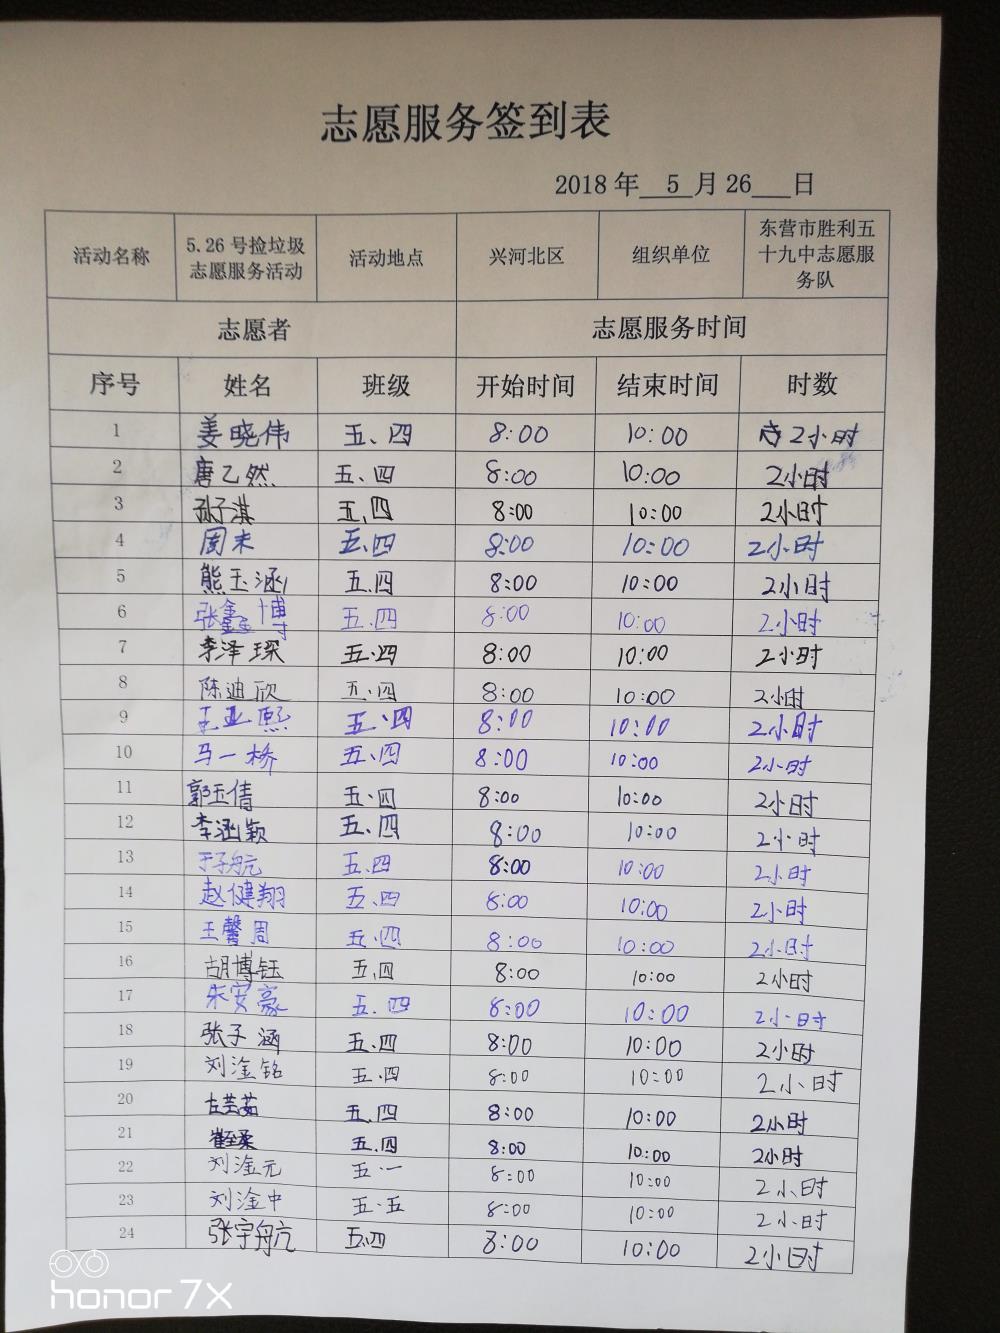 志愿服务签到表
2018 年 5 月 26 日
活动名称 5.26 号捡垃圾志愿服务活动 活动地点 兴河北区 组织单位 东营市胜利五十九中志愿服务队
志愿者 志愿服务时间
序号 姓名 班级 开始时间 结束时间 时数
1 姜晓伟 五、四 8:00 10:00 2小时
2 唐乙然 五、四 8:00 10:00 2小时
3 孙子淇 五、四 8:00 10:00 2小时
4 周末 五、四 8:00 10:00 2小时
5 熊玉涵 五.四 8:00 10:00 2小时
6 张鑫博 五.四 8:00 10:00 2小时
7 李泽琛 五.四 8:00 10:00 2小时
8 陈迪欣 五.四 8:00 10:00 2小时
9 王亚熙 五.四 8:00 10:00 2小时
10 马一桥 五.四 8:00 10:00 2小时
11 郭玉倩 五.四 8:00 10:00 2小时
12 李涵颖 五.四 8:00 10:00 2小时
13 于子航 五.四 8:00 10:00 2小时
14 赵健翔 五.四 8:00 10:00 2小时
15 王馨周 五.四 8:00 10:00 2小时
16 胡博钰 五.四 8:00 10:00 2小时
17 朱安豪 五.四 8:00 10:00 2小时
18 张子涵 五.四 8:00 10:00 2小时
19 刘淦铭 五.四 8:00 10:00 2小时
20 五.四 8:00 10:00 2小时
21 五.四 8:00 10:00 2小时
22 刘淦元 五.一 8:00 10:00 2小时
23 刘淦中 五.五 8:00 10:00 2小时
24 张宇航 五.四 8:00 10:00 2小时
honor 7X